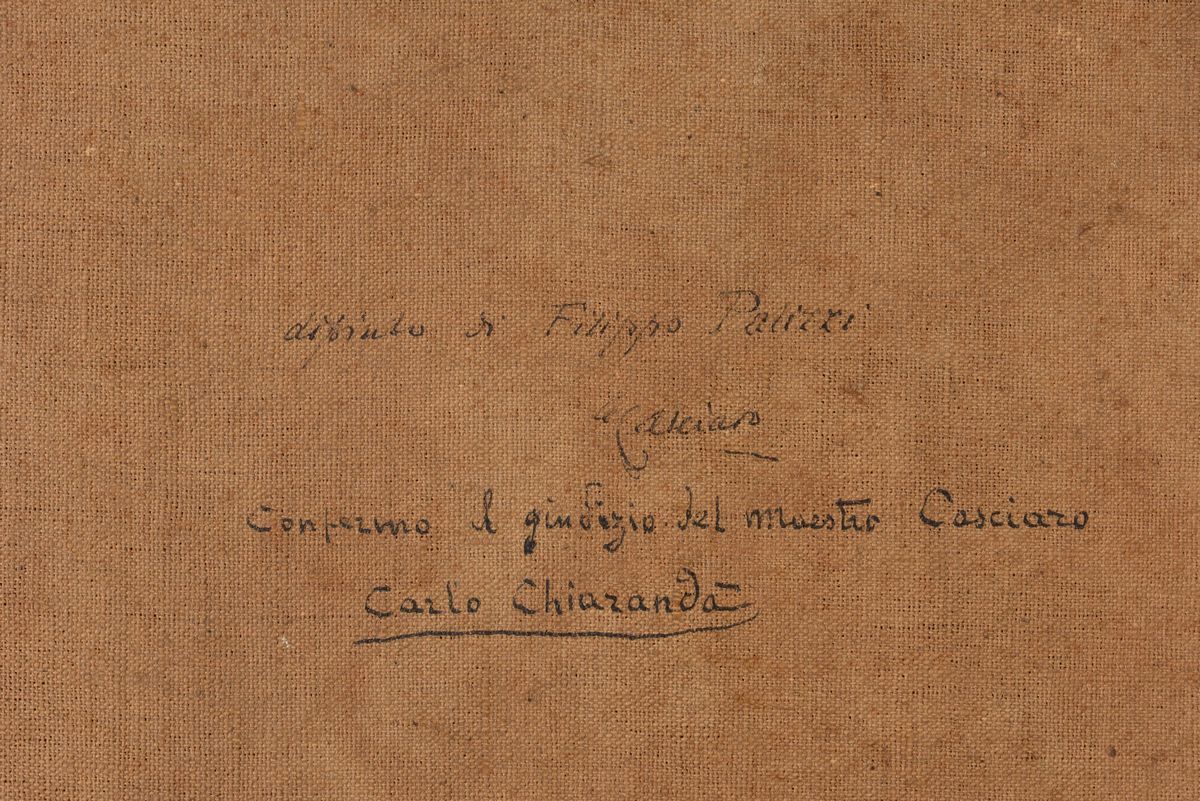 dipinto di Filippo Palizzi
Casciaro
Confermo il giudizio del maestro Casciaro
Carlo Chiarandà